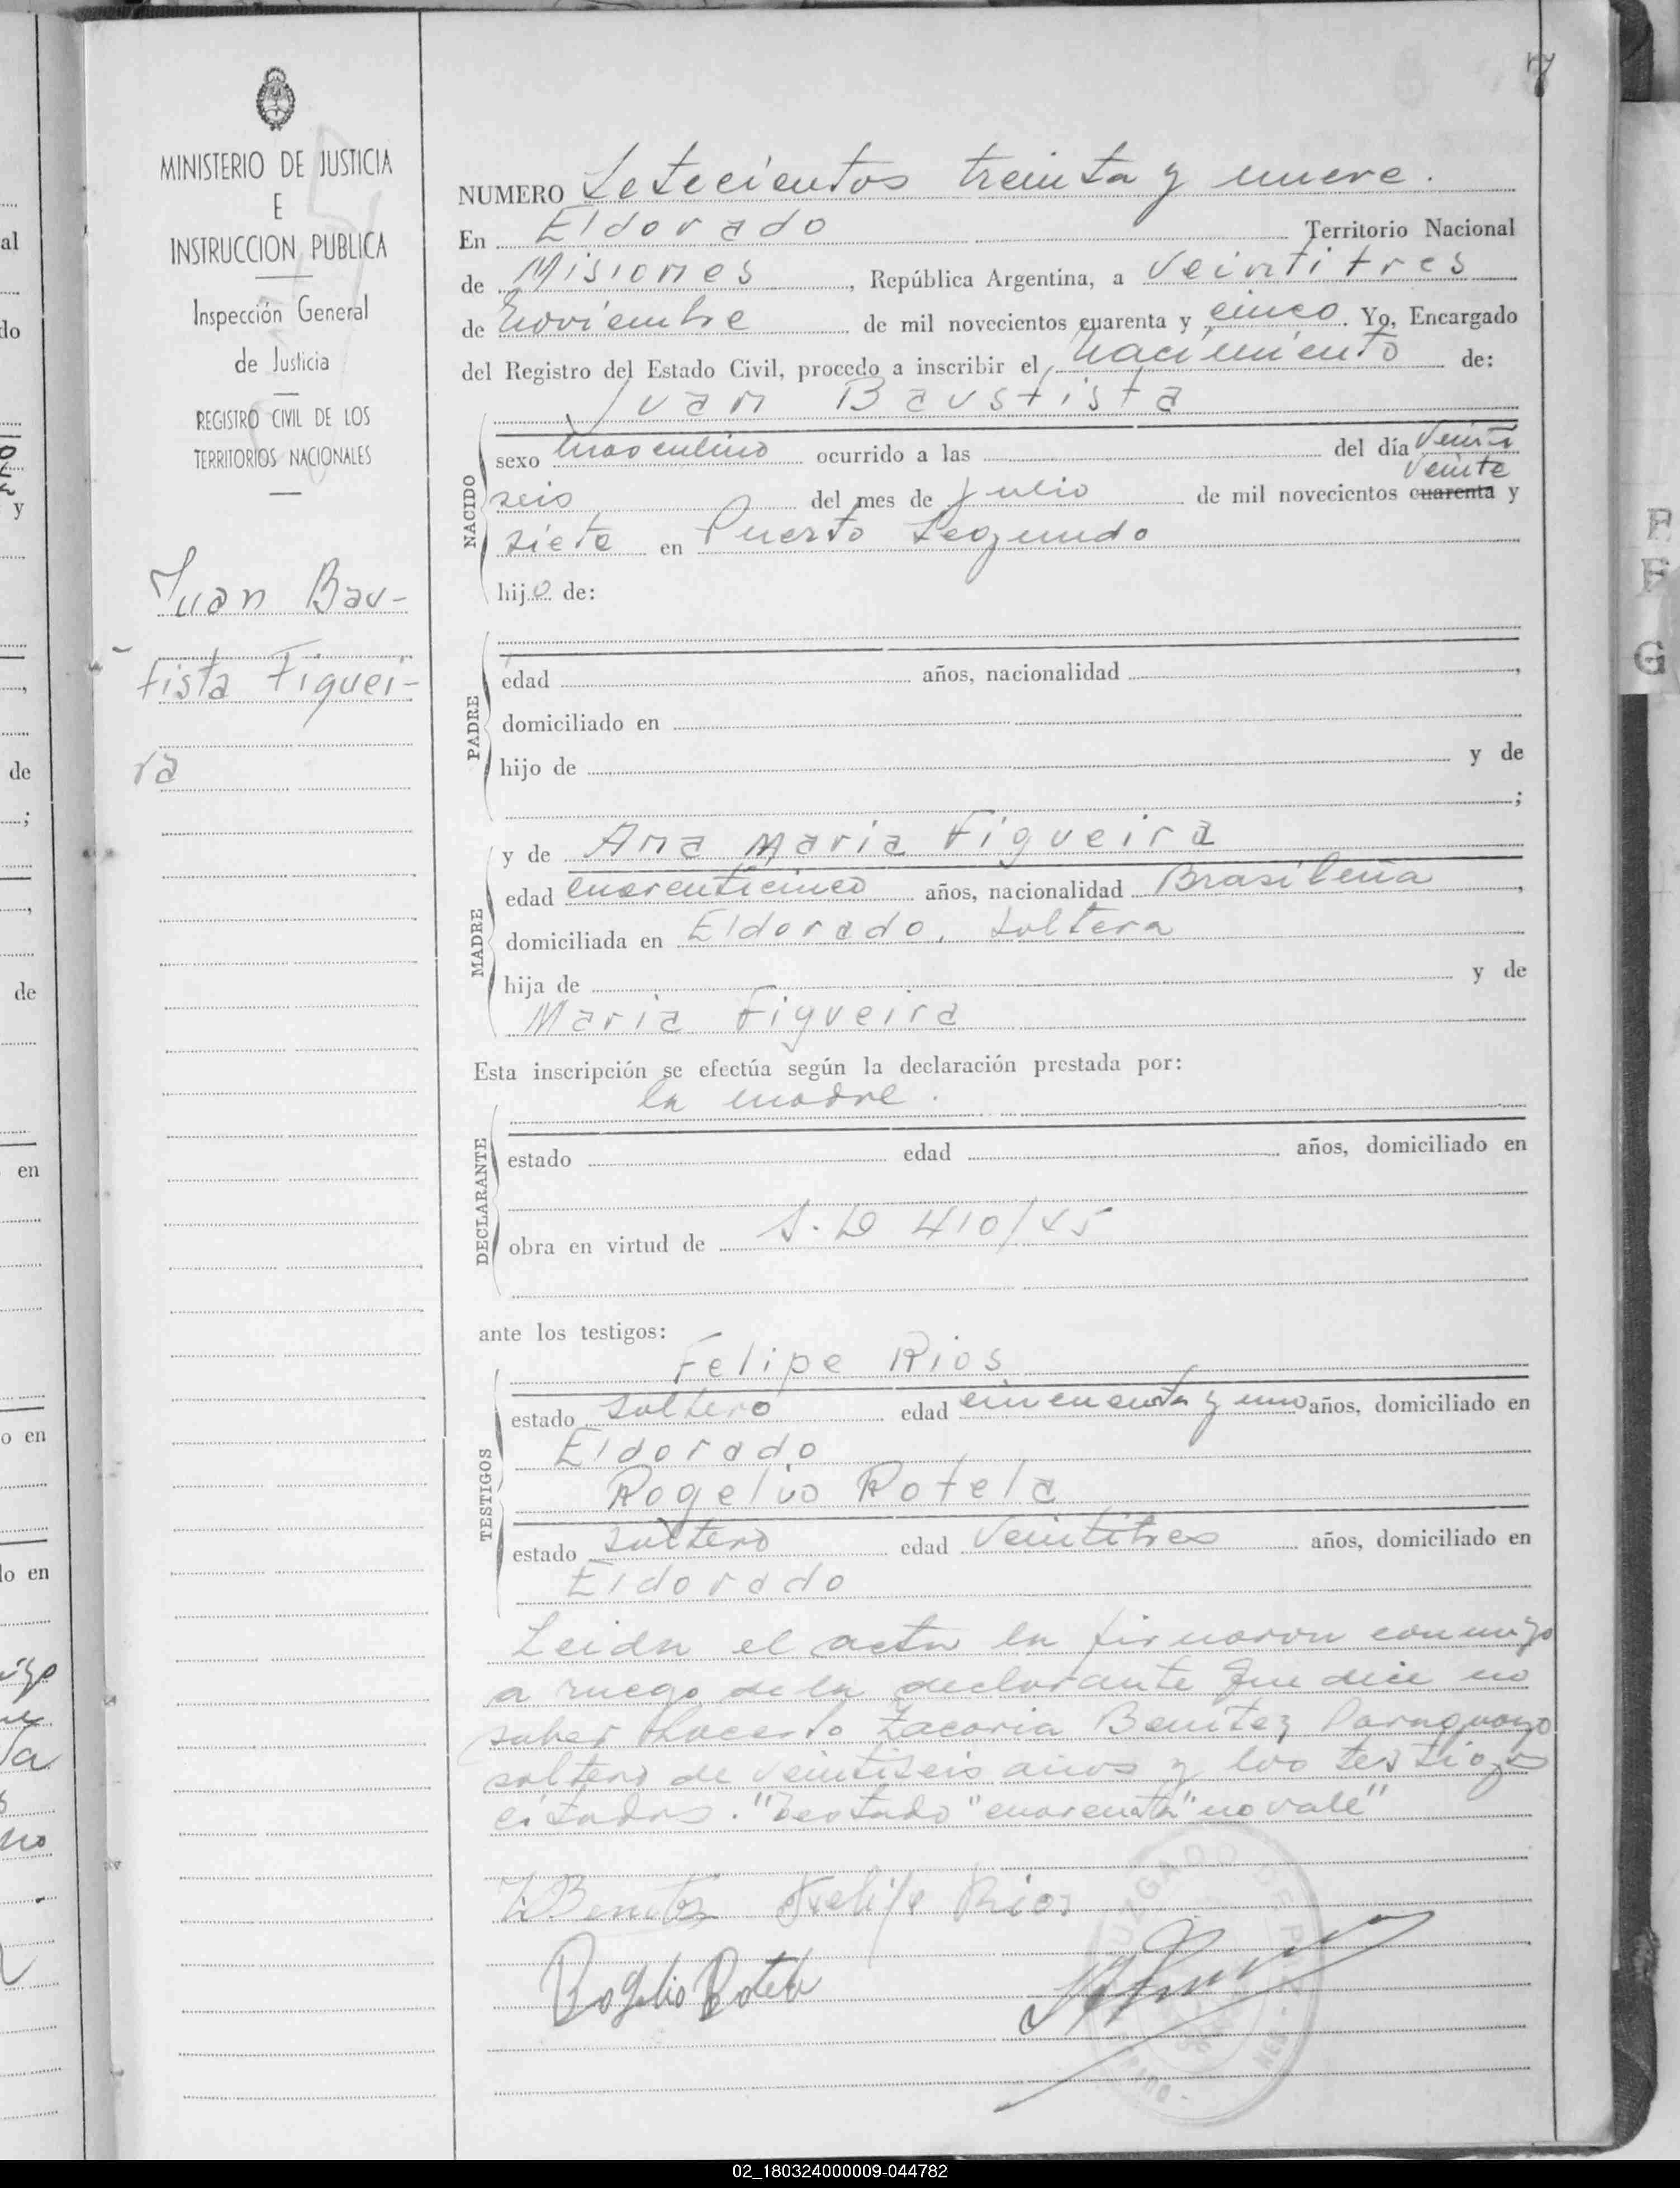 7
MINISTERIO DE JUSTICIA
E
INSTRUCCION PUBLICA
Inspección General
de Justicia
REGISTRO CIVIL DE LOS
TERRITORIOS NACIONALES
Juan Bau-
tista Figuei-
ra
NUMERO Setecientos treinta y nueve.
En Eldorado Territorio Nacional
de Misiones, República Argentina, a veintitres
de noviembre de mil novecientos cuarenta y cinco. Yo, Encargado
del Registro del Estado Civil, procedo a inscribir el nacimiento de:
Juan Baustista
NACIDO
sexo masculino ocurrido a las del día veinti
veinte
seis del mes de julio de mil novecientos cuarenta y
siete en Puerto Segundo
hijo de:
PADRE
edad años, nacionalidad ,
domiciliado en
hijo de y de
;
MADRE
y de Ana Maria Figueira
edad cuarenticinco años, nacionalidad Brasileña,
domiciliada en Eldorado, soltera
hija de y de
Maria Figueira
Esta inscripción se efectúa según la declaración prestada por:
la madre.
DECLARANTE
estado edad años, domiciliado en
obra en virtud de S. D 410/45
ante los testigos:
TESTIGOS
Felipe Rios
estado soltero edad cincuenta y uno años, domiciliado en
Eldorado
Rogelio Rotela
estado soltero edad veintitres años, domiciliado en
Eldorado
Leida el acta la firmaron conmigo
a ruego de la declarante que dice no
saber hacerlo Zacaria Benitez Paraguayo
soltero de veintiseis años y los testigos
citados. "Testado "cuarenta" no vale"
Z Benitez Felipe Rios
Rogelio Rotela
JUZGADO DE PAZ
al
do
y
de
;
de
en
o en
lo en
P
F
G
02_180324000009-044782